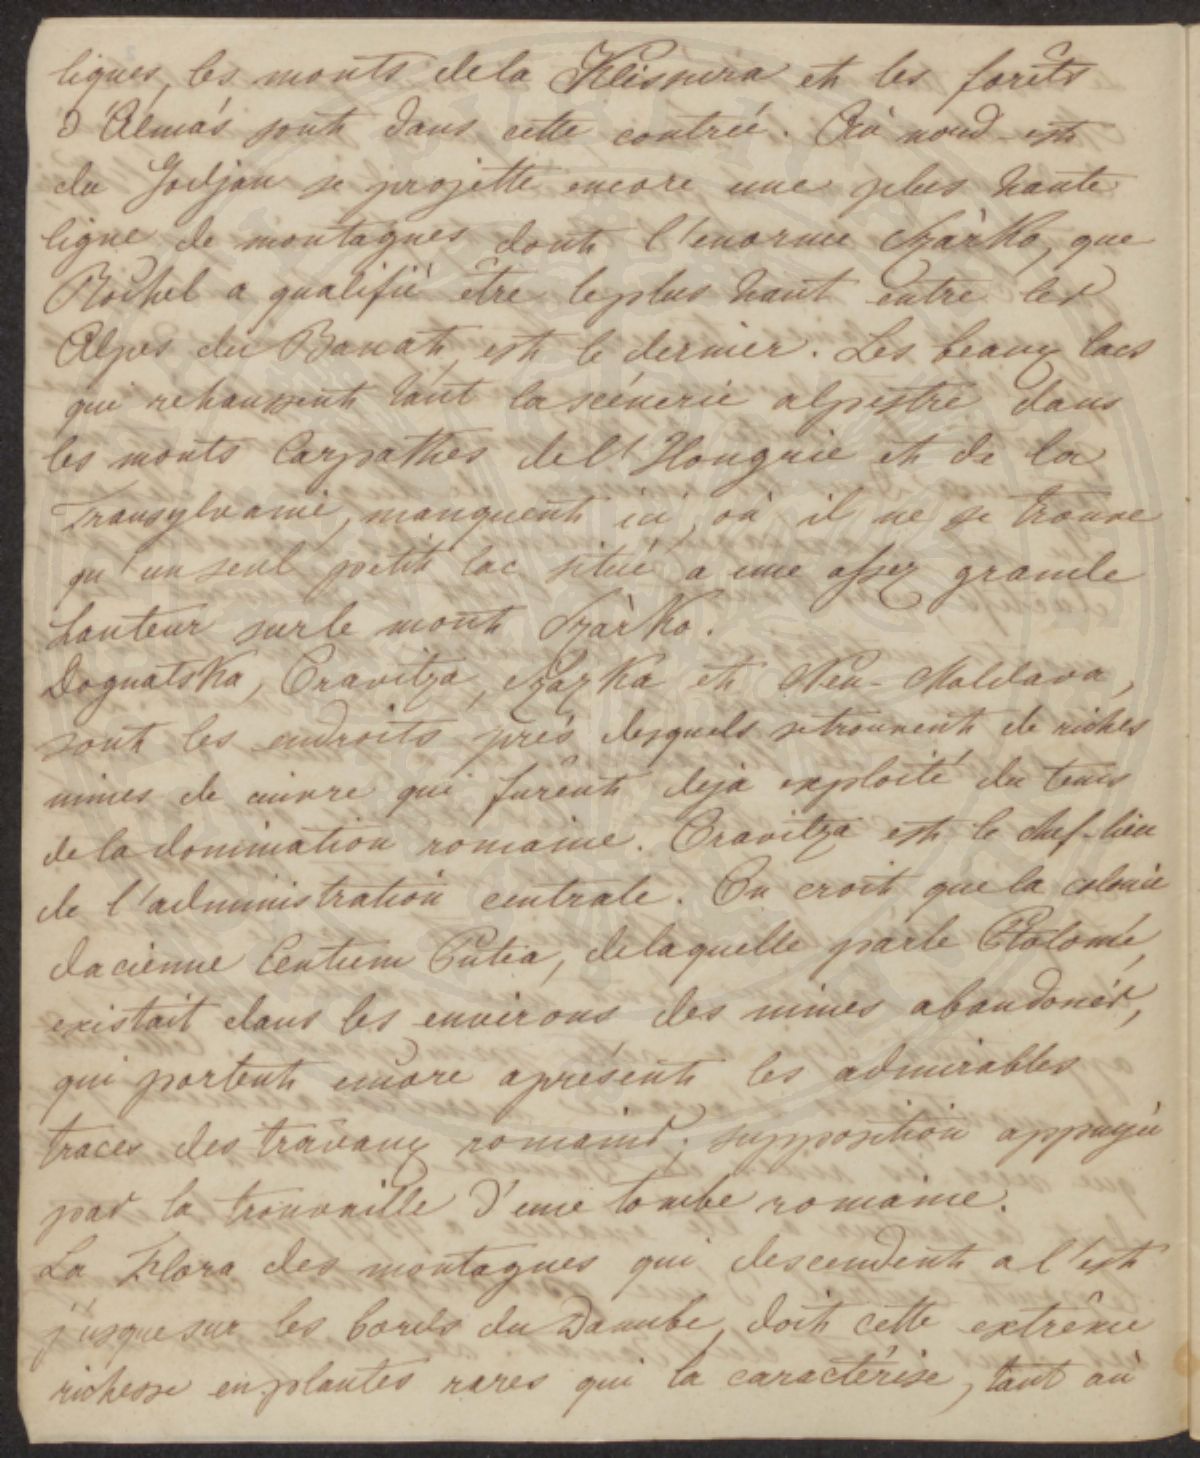 lignes, les monts dela Klisura et les forêts
d'Almás sont dans cette contrée. Au nord-est
du Godjan se projette encore une plus haute
ligne de montagnes dont l'enorme Szàrko, que
Rochel a qualifié être leplus haut entre les
Alpes du Banat, est le dernier. Les beaux lacs
qui rehaussent tant lascénerie alpestre dans
les monts Carpathes del'Hongrie et de la
Transylvanie, manquent ici, où il ne se trouve
qu'un seul petit lac situé a une assez grande
hauteur surle mont Szàrko.
Dognatska, Oravitza, Szazka et Neu-Moldava,
sont les endroits près desquels setrouvent de riches
mines de cuivre qui furênt dejà exploité du tems
dela domination romaine. Oravitza est le chef-lieu
de l'administration centrale. On croit que la colonie
dacienne Centum Putea, delaquelle parle Ptolomé,
existait dans les environs des mines abandonés,
qui portent encore aprésent les admirables
traces des travaux romains; supposition appuyée
par la trouvaille d'une tombe romaine.
La Flora des montagnes qui descendent a l'est
jusquesur les bords du Danube, doit cette extrême
richesse enplantes rares qui la caractérise, tant au